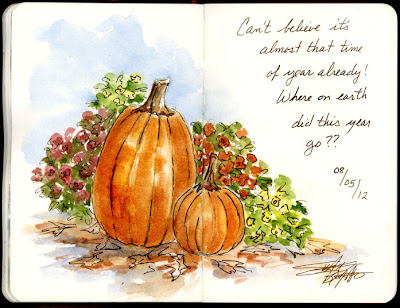 Can't believe it's
almost that time
of year already!
Where on earth
did this year
go??
08/05/12